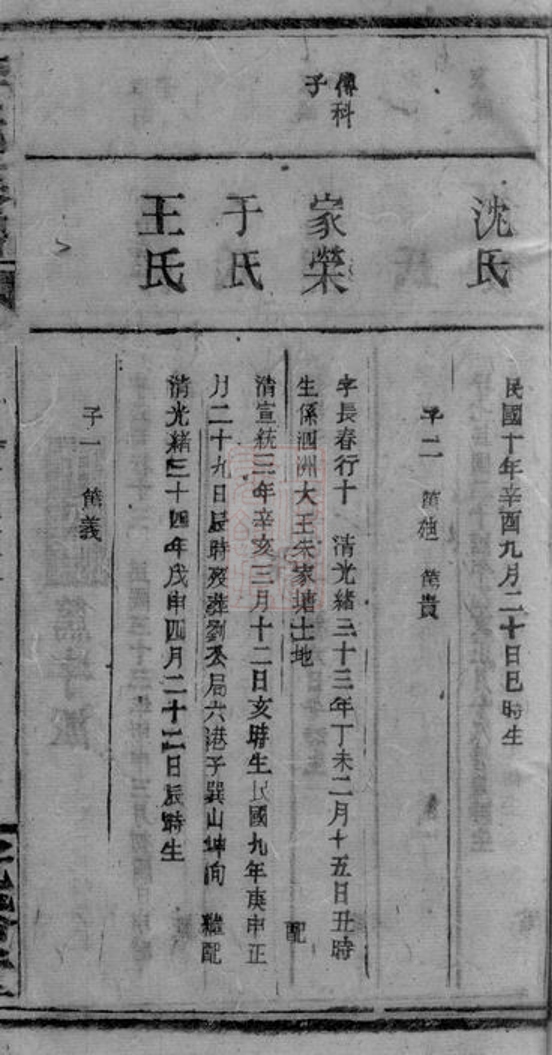 沈氏
民國十年辛酉九月二十日巳時生
子二
貴
傳科
子
家榮
字長春行十 清光緒三十三年丁未二月十五日丑時
生係泗洲大王朱家塘土地 配
于氏
清宣統三年辛亥三月十二日亥時生民國九年庚申正
月二十九日辰時歿葬劉公局六港子巽山坤向 繼配
王氏
清光緒三十四年戊申四月二十二日辰時生
子一 義